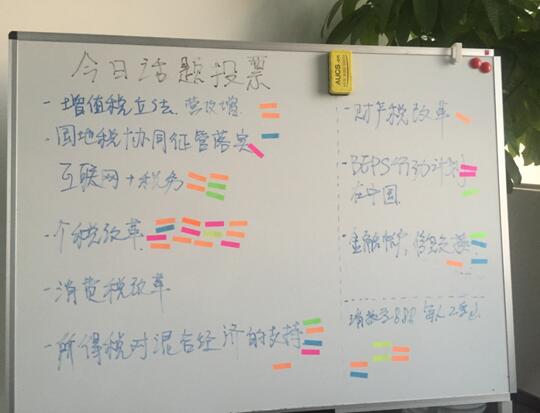 今日话题投票
- 增值税立法、营改增
- 国地税协同征管落实
互联网+税务
- 个税改革
- 消费税改革
- 所得税对混合经济的支持
AUCS
- 财产税改革
- BEPS行动计划
在中国
- 金融帐户信息交换
888 每人2票